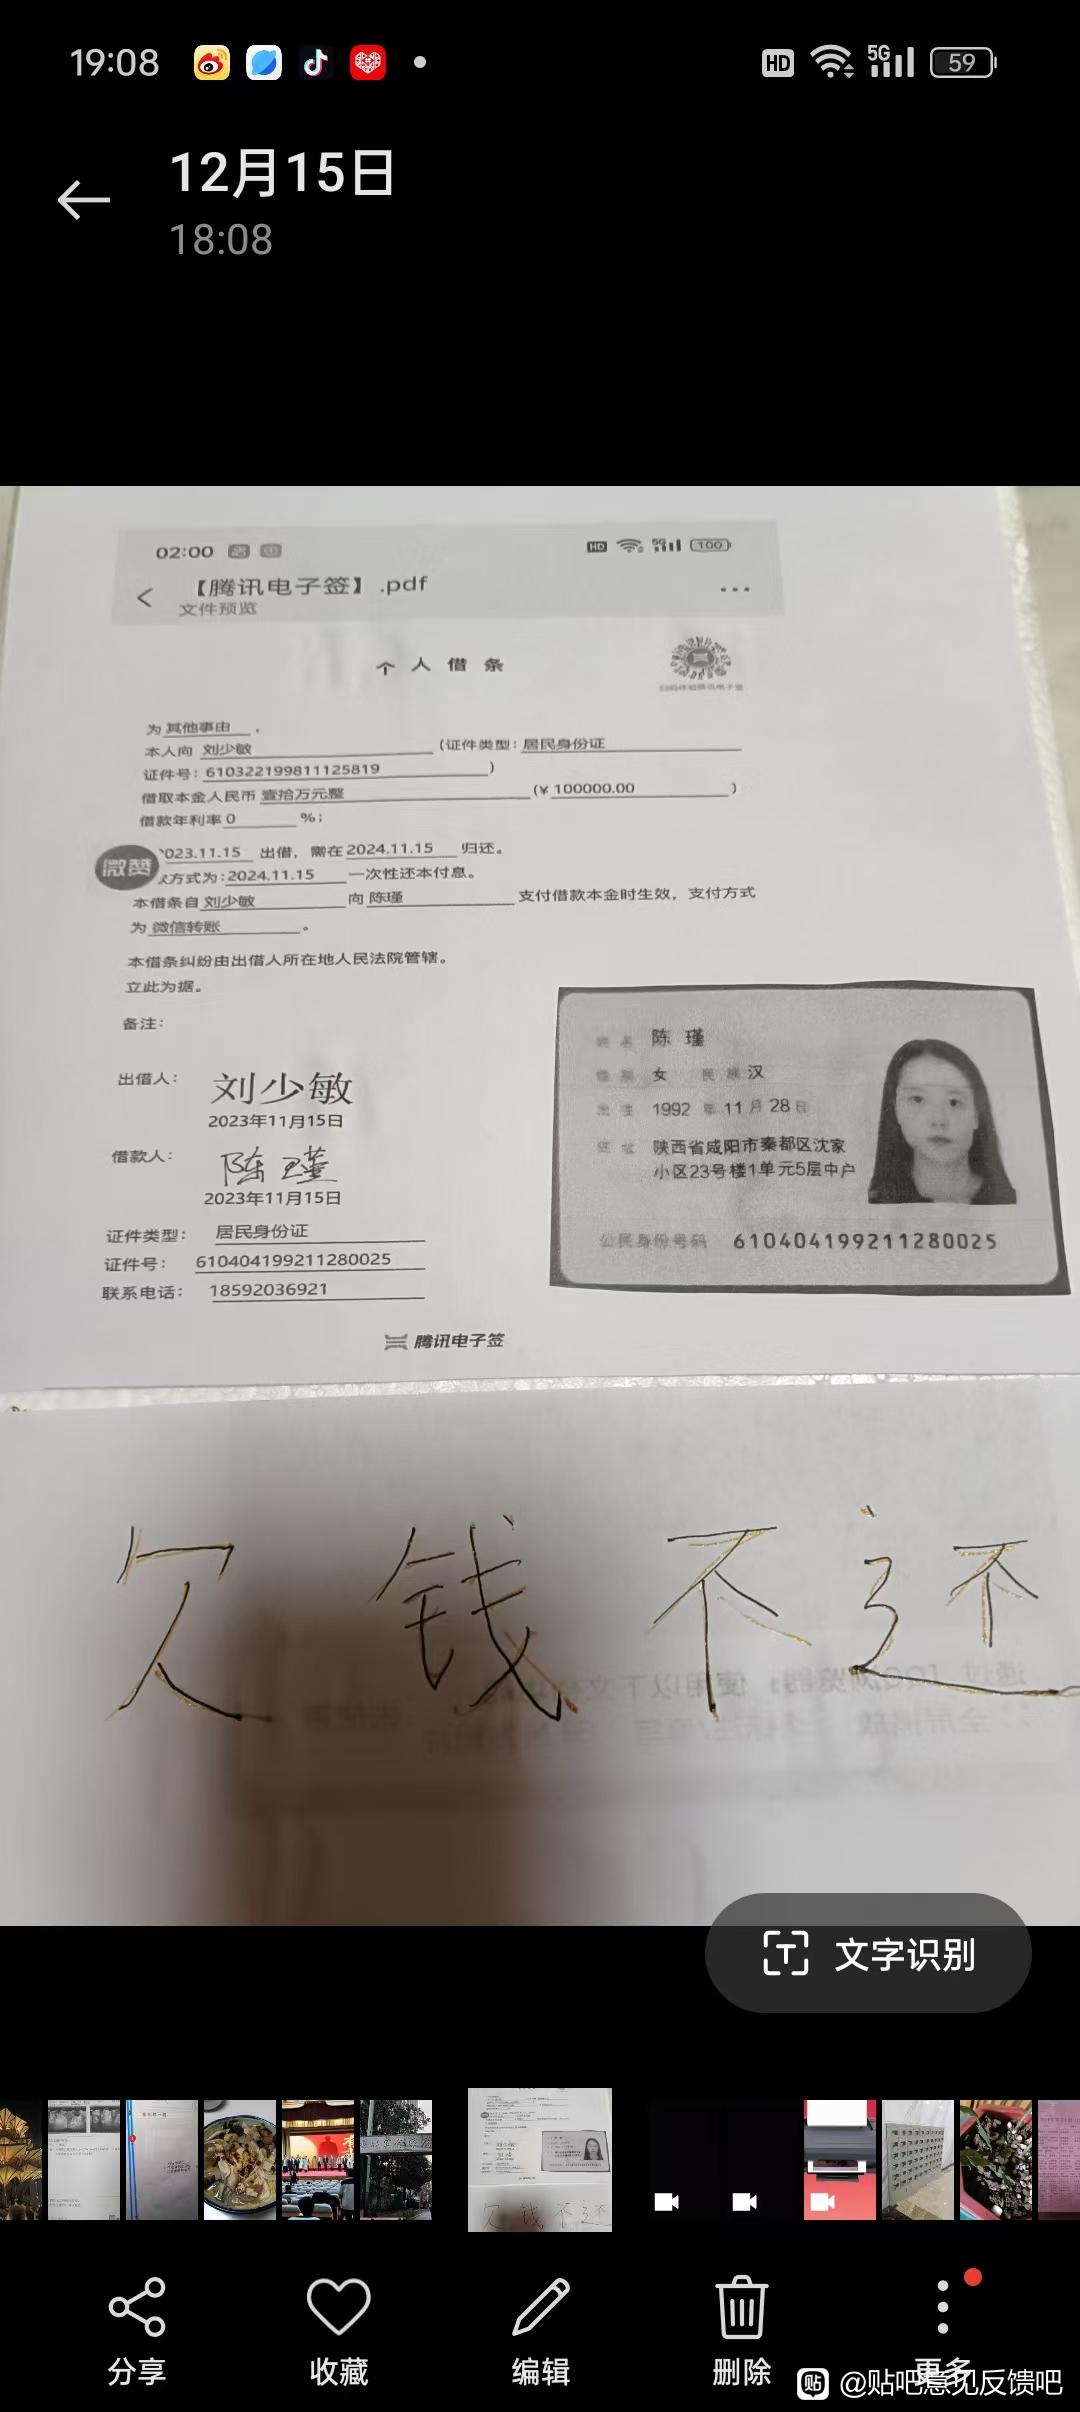 19:08 HD 5G 59
12月15日
18:08
02:00 HD 5G 100
【腾讯电子签】.pdf
文件预览
个人借条
为 其他事由 ，
本人向 刘少敏 （证件类型：居民身份证
证件号：610322199811125819 ）
借取本金人民币 壹拾万元整 （¥ 100000.00 ）
借款年利率 0 %；
023.11.15 出借，需在 2024.11.15 归还。
微赞
方式为：2024.11.15 一次性还本付息。
本借条自 刘少敏 向 陈瑾 支付借款本金时生效，支付方式
为 微信转账 。
本借条纠纷由出借人所在地人民法院管辖。
立此为据。
备注：
出借人： 刘少敏
2023年11月15日
借款人： 陈瑾
2023年11月15日
证件类型： 居民身份证
证件号： 610404199211280025
联系电话： 18592036921
腾讯电子签
姓名 陈瑾
性别 女 民族 汉
出生 1992 年 11 月 28 日
住址 陕西省咸阳市秦都区沈家
小区23号楼1单元5层中户
公民身份号码 610404199211280025
欠钱不还
文字识别
分享 收藏 编辑 删除 更多
@贴吧意见反馈吧